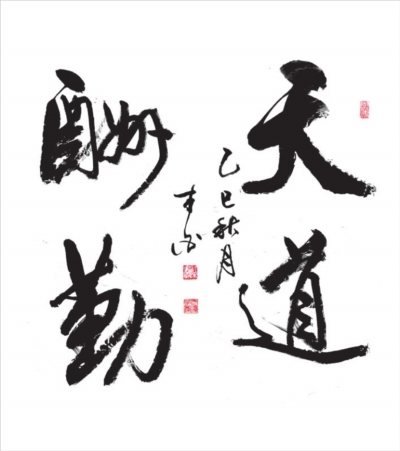 天道
酬勤
乙巳秋月